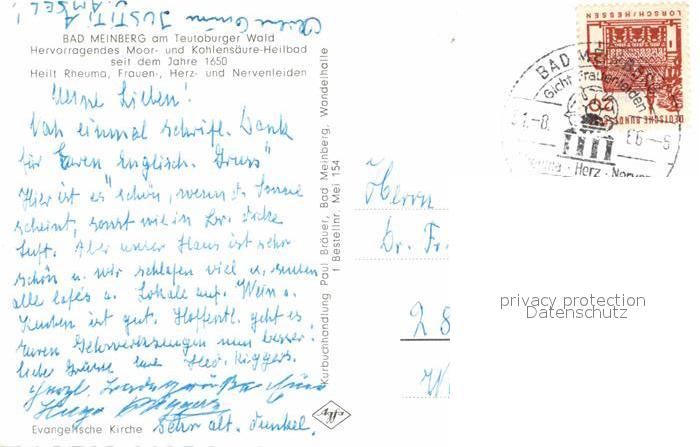 BAD MEINBERG am Teutoburger Wald
Hervorragendes Moor- und Kohlensäure-Heilbad
seit dem Jahre 1650
Heilt Rheuma, Frauen-, Herz- und Nervenleiden
JUSTITIA
Meine Lieben!
Noch einmal schriftl. Dank
für Euren Englisch. Gruss"
Hier ist es schön, wenn d. Sonne
scheint, sonst wie in dicke
Luft. Aber unser Haus ist sehr
schön u. wir schlafen viel u. suchen
alle Cafés u. Lokale auf. Wein u.
Kuchen ist gut. Hoffentl. geht es
Euren besser.
liebe Grüsse Eure
Herzl.
Hugo
Evangelische Kirche sehr alt. dunkel.
Kurbuchhandlung Paul Bräuer, Bad Meinberg, Wandelhalle
1 Bestellnr. Mei 154
Agfa
Herrn
Dr. Fr.
28
W
LORSCH/HESSEN
20
DEUTSCHE BUND
BAD MEINBERG
Gicht Frauenleiden
-8.
66-5
Herz · Nerven
privacy protection
Datenschutz